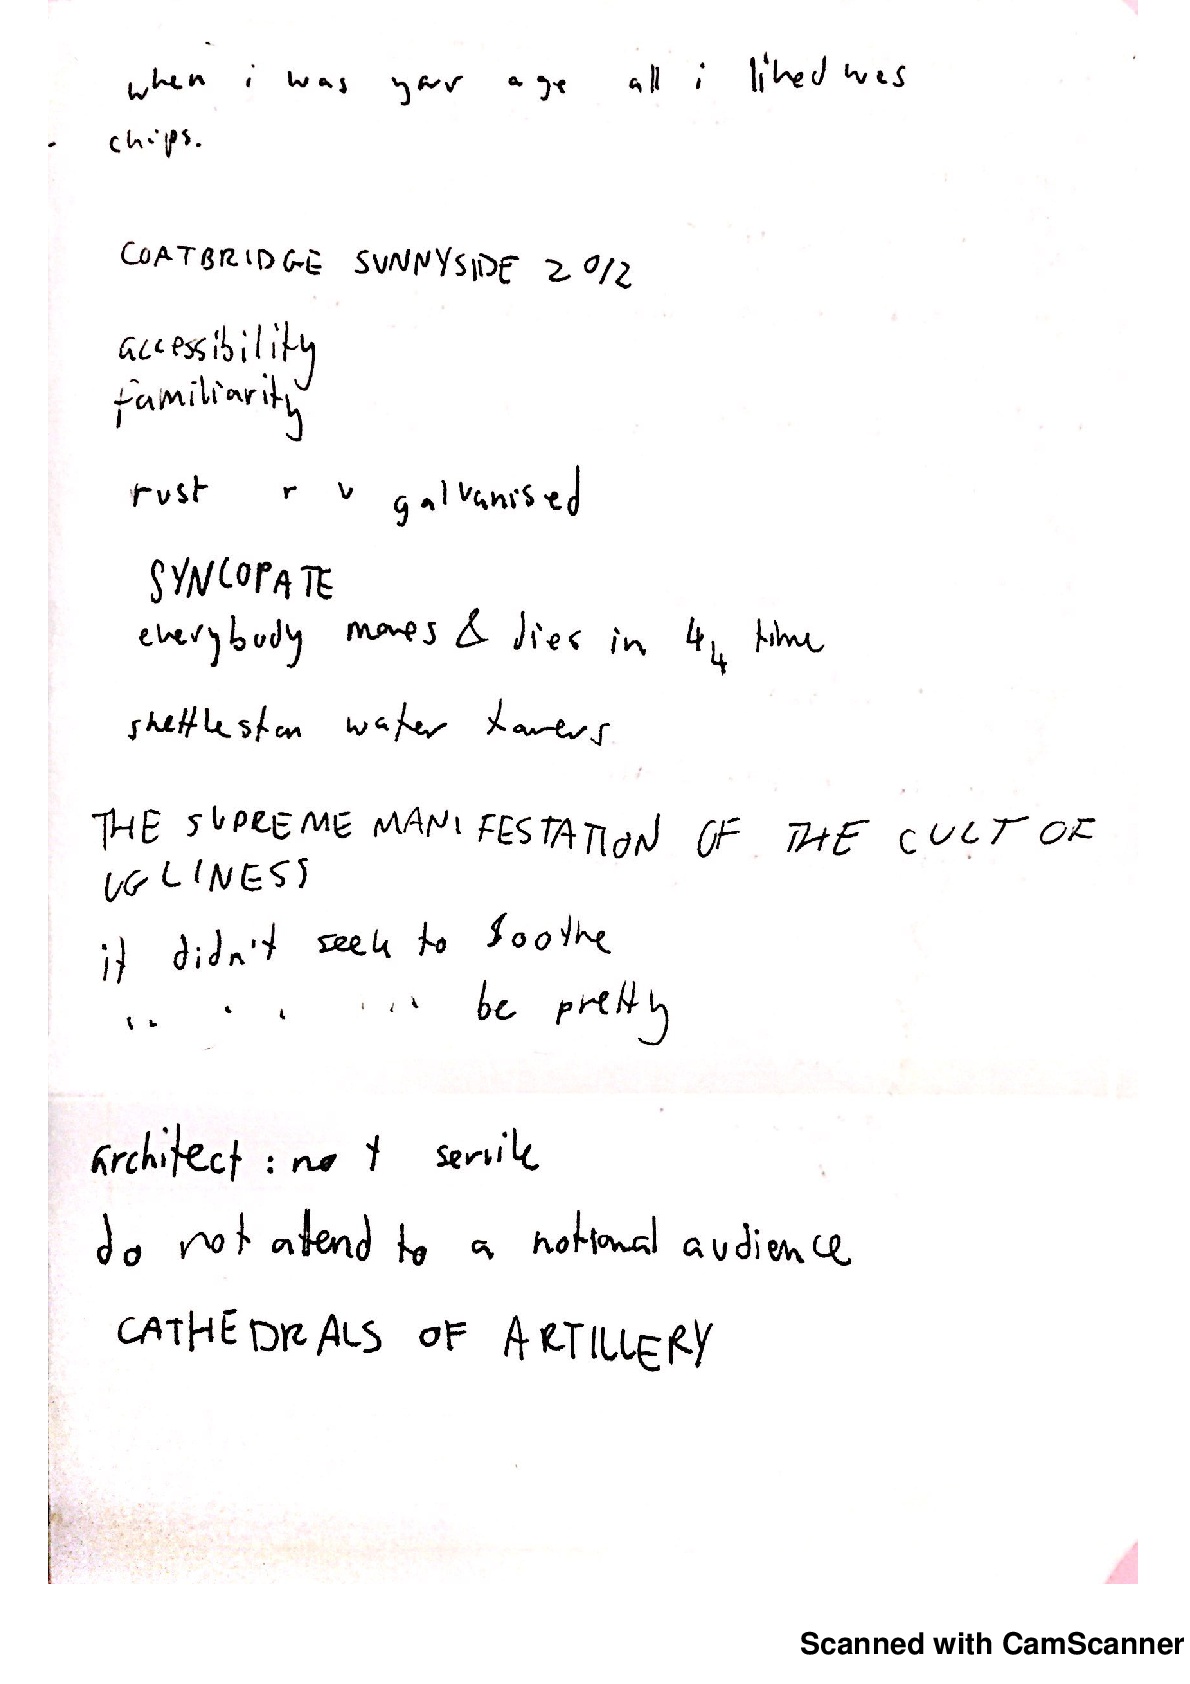 when i was your age all i liked was
chips.
COATBRIDGE SUNNYSIDE 2012
accessibility
familiarity
rust r v galvanised
SYNCOPATE
everybody moves & dies in 4/4 time
shettleston water towers
THE SUPREME MANIFESTATION OF THE CULT OF
UGLINESS
it didn't seek to soothe
" " " be pretty
architect : not servile
do not atend to a notional audience
CATHEDRALS OF ARTILLERY
Scanned with CamScanner